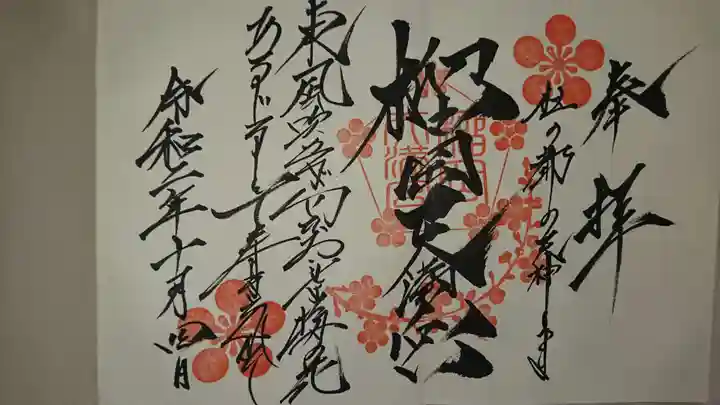 奉拝
杜の都の天神さま
榴岡天満宮
東風吹かば匂ひおこせよ梅花
あるじなしとて春な忘れそ
令和二年十月四日